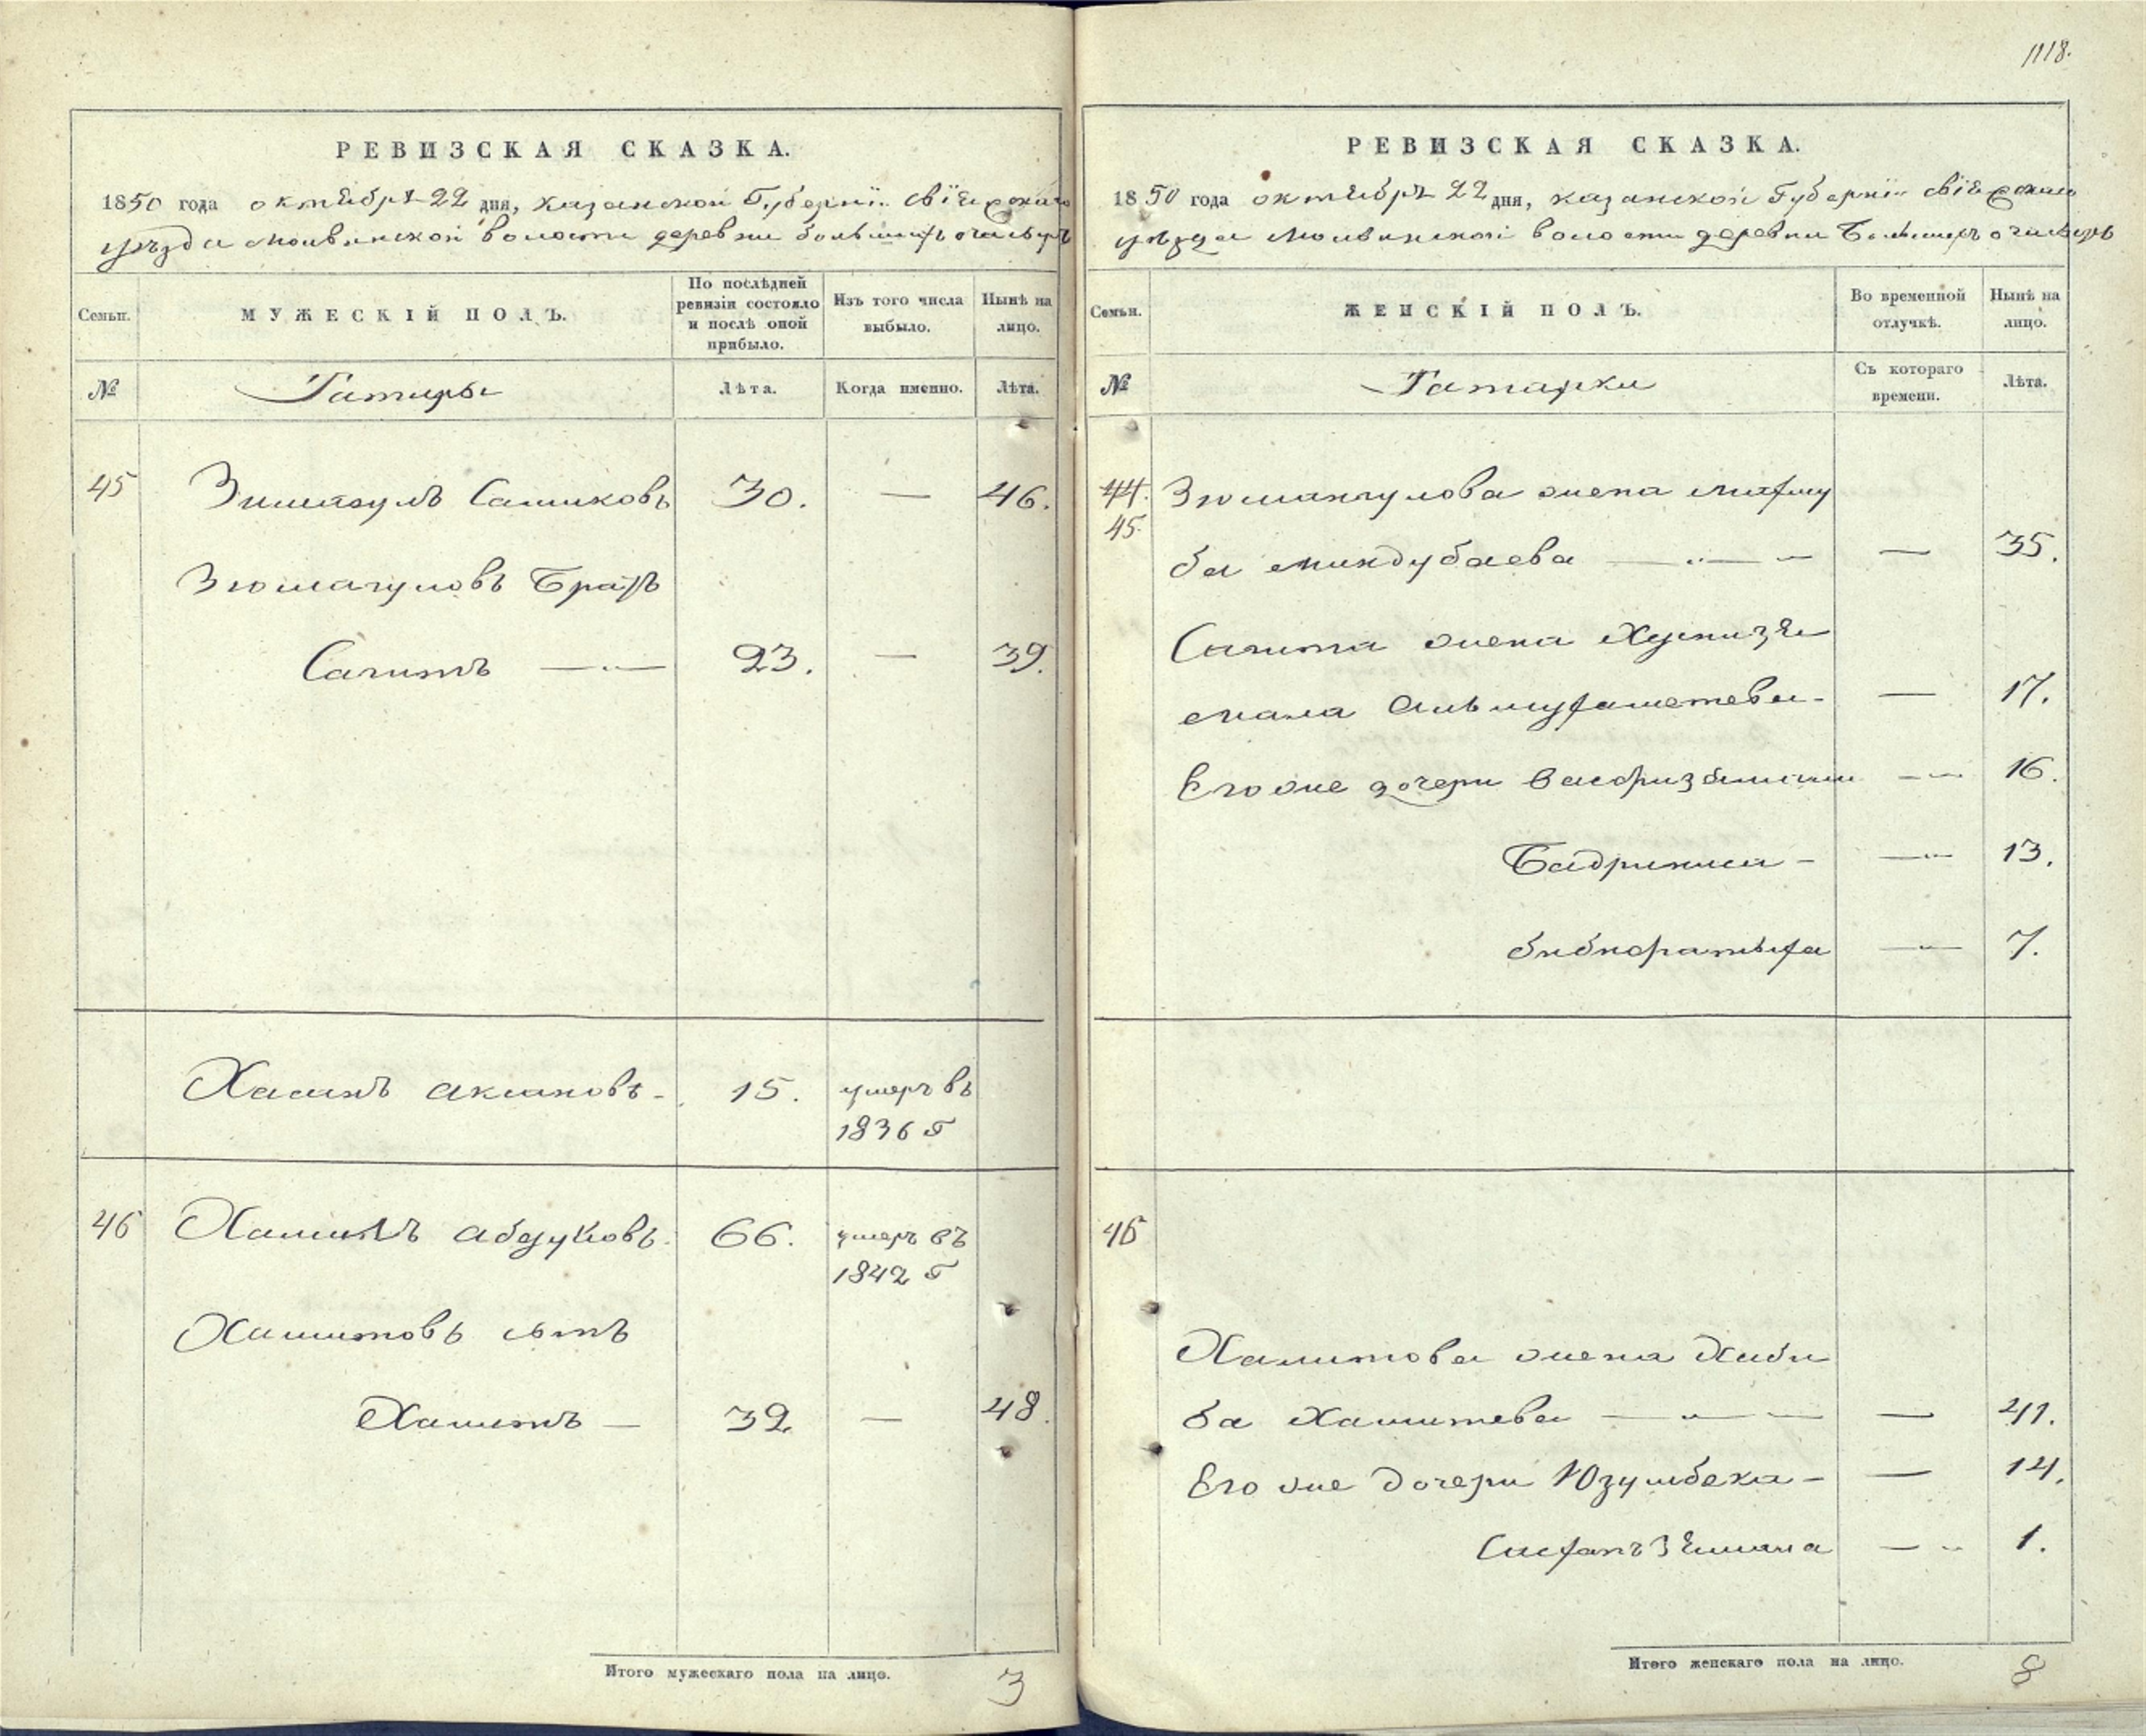 1118.
РЕВИЗСКАЯ СКАЗКА.
1850 года октября 22 дня, казанской Губернїи Свїяжскаго
уѣзда Молвинской волости деревни большихъ
Семьи.
МУЖЕСКІЙ ПОЛЪ.
По послѣдней
ревизіи состояло
и послѣ оной
прибыло.
Изъ того числа
выбыло.
Нынѣ на
лицо.
№
Татары
Лѣта.
Когда именно.
Лѣта.
45 30. — 46.
Зюмагуловъ Братъ
Сагитъ — 23. — 39.
Хасанъ 15. умеръ въ
1836 г
46 Хамитъ 66. умеръ въ
1842 г
Хамитовъ сынъ
32 — 48.
Итого мужескаго пола на лицо. 3
РЕВИЗСКАЯ СКАЗКА.
1850 года октября 22 дня, казанской Губернїи Свїяжскаго
уѣзда Молвинской волости деревни Большихъ
Семьи.
ЖЕНСКІЙ ПОЛЪ.
Во временной
отлучкѣ.
Нынѣ на
лицо.
№
Татарки
Съ котораго
времени.
Лѣта.
44.
45. Зюмангулова жена Махму
ба Миндубаева — — 35.
Сагита жена Хуснизя
мала — 17.
Его же дочери — 16.
Бадриниса — — 13.
— 7.
46
Хамитова жена Хаби
ба Хамитева — — 41.
Его же дочери Юзумбека — — 14.
— 1.
Итого женскаго пола на лицо. 8